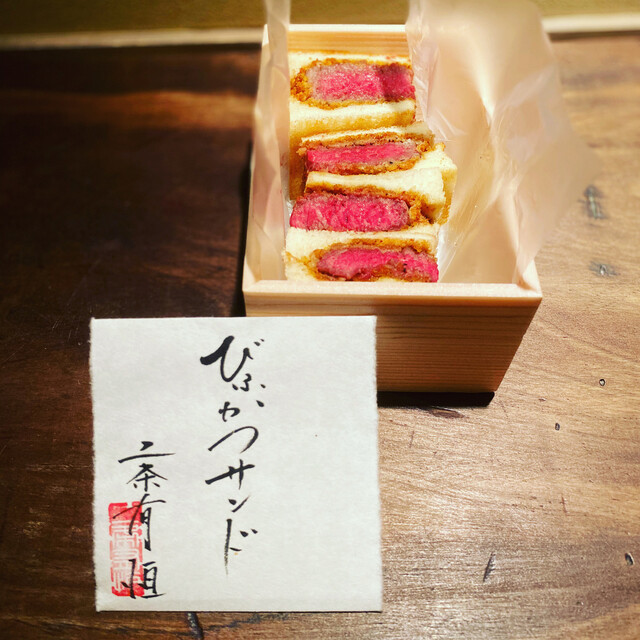 びふかつサンド
二条有恒